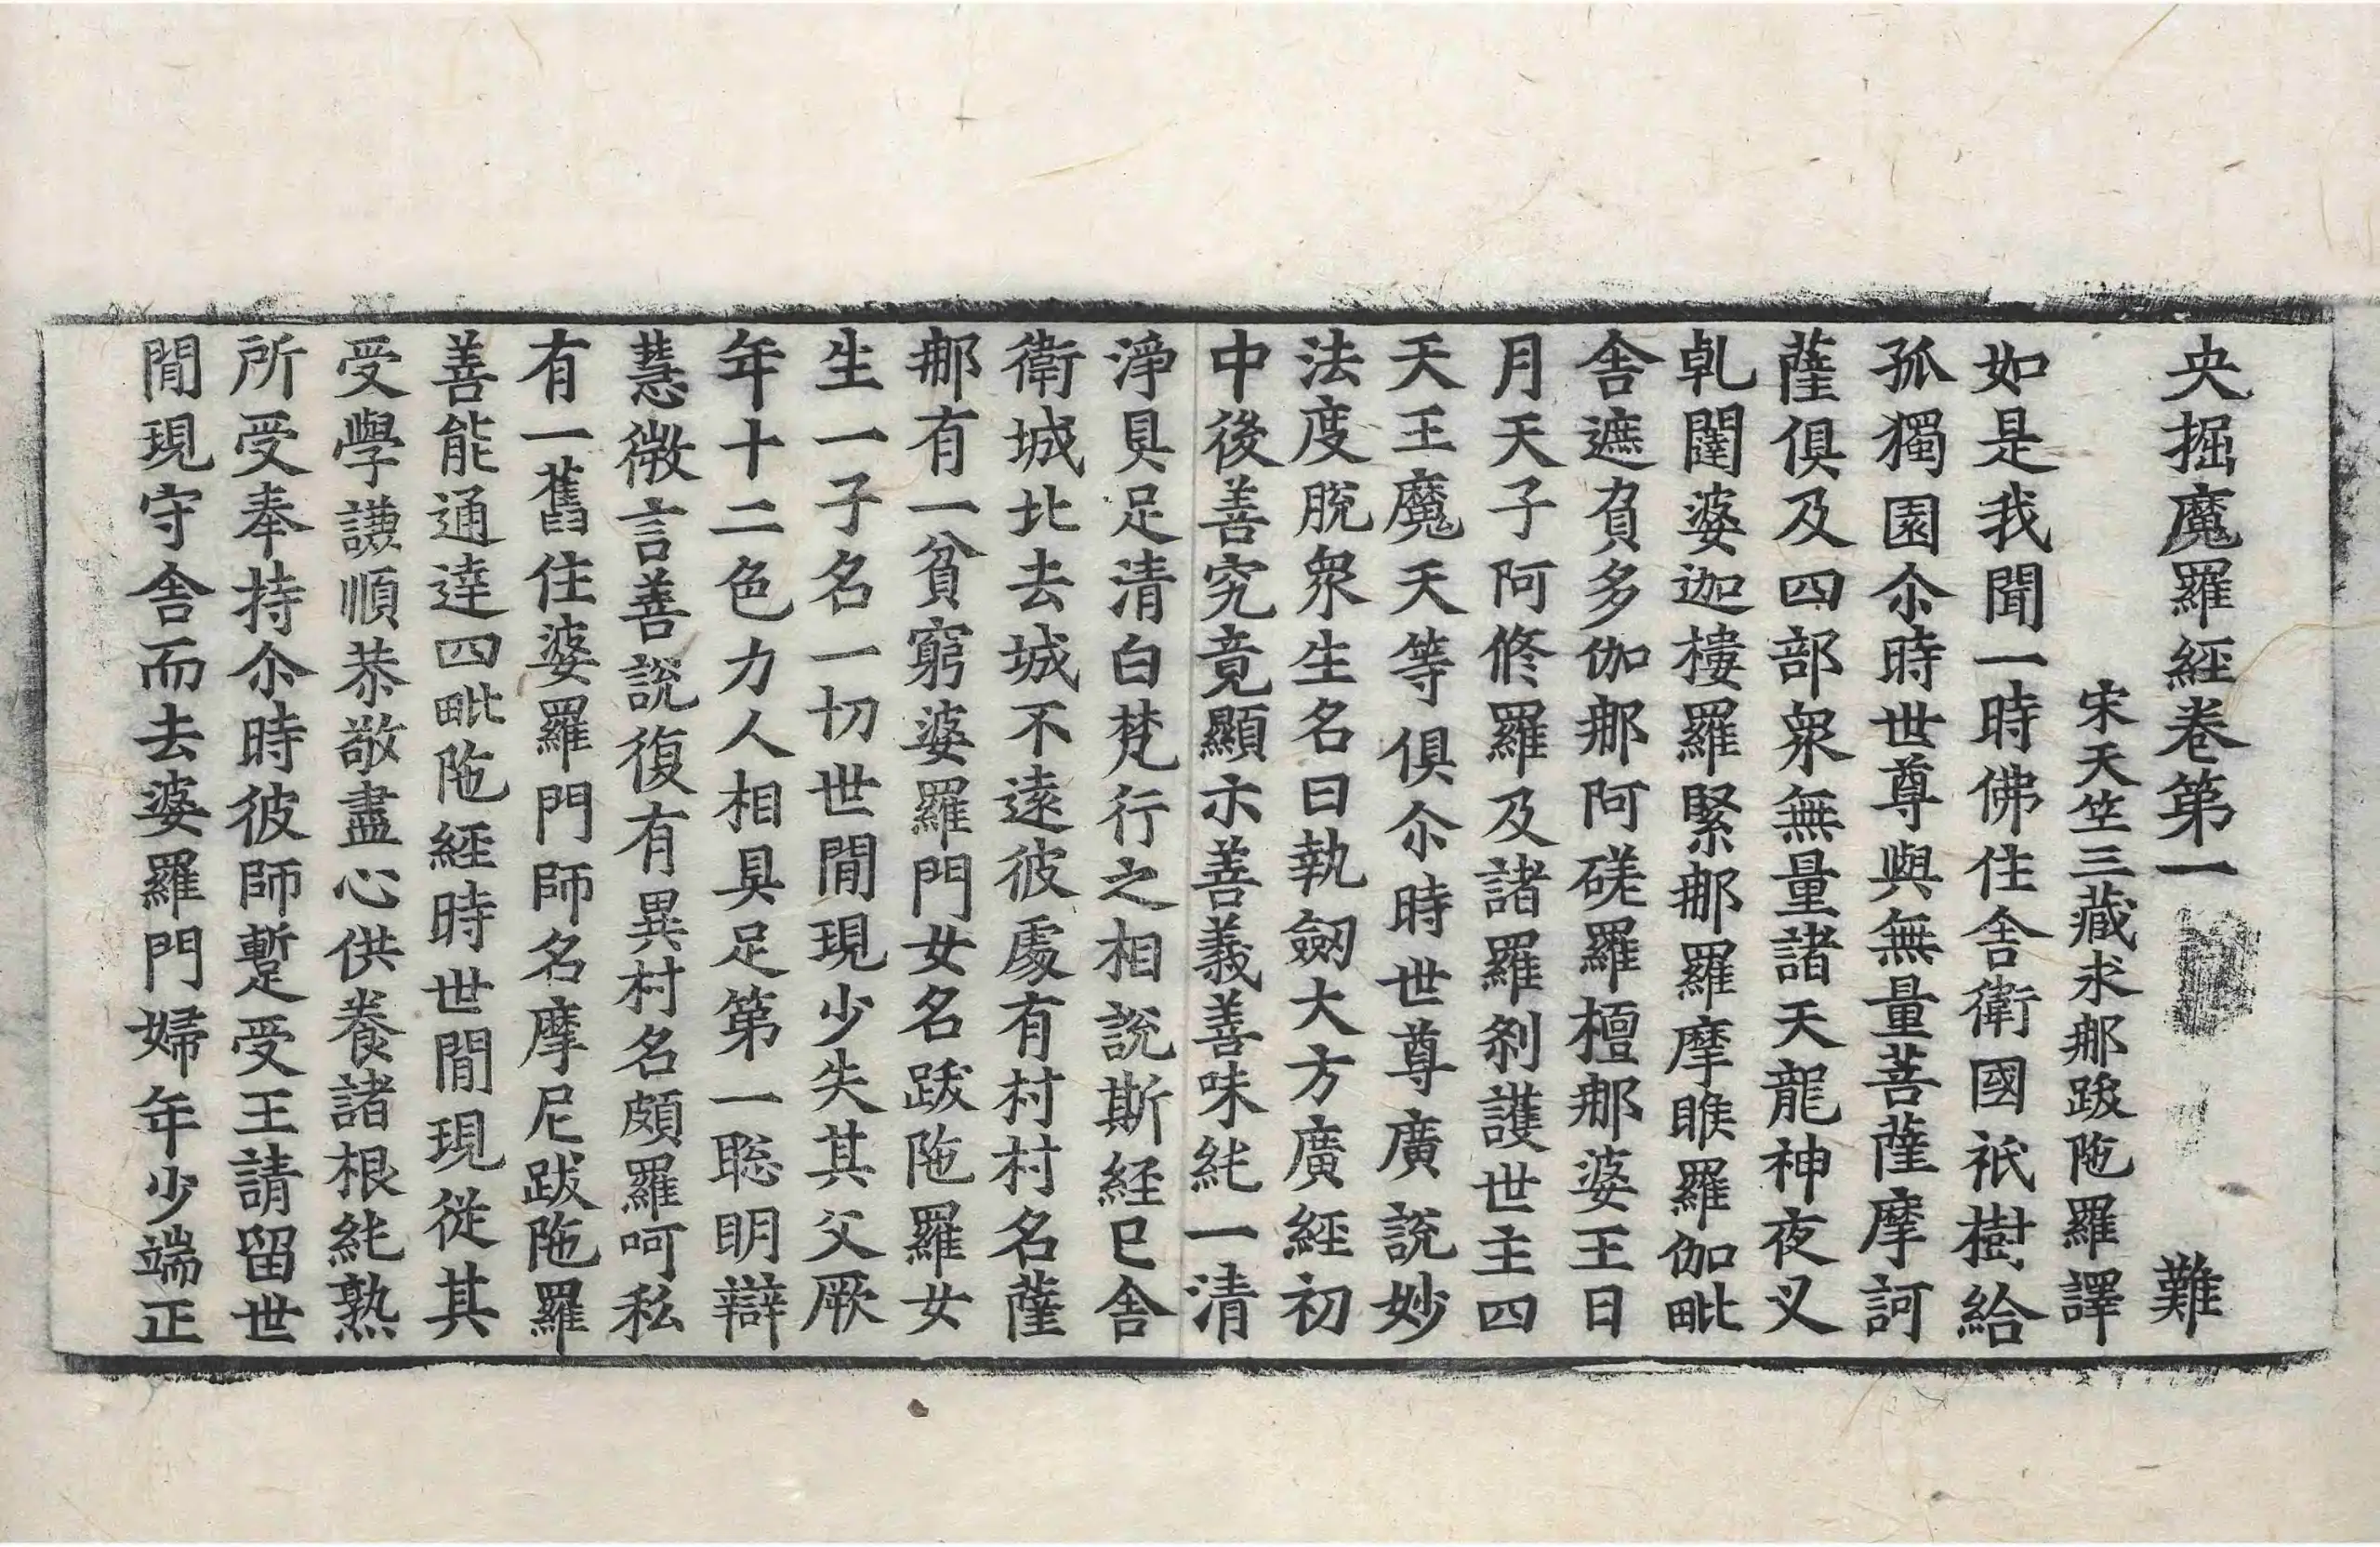 央掘魔羅經卷第一 難
宋天竺三藏求那跋陁羅譯
如是我聞一時佛住舎衛國祇樹給
孤獨園尒時世尊與無量菩薩摩訶
薩俱及四部衆無量諸天龍神夜叉
乹闥婆迦樓羅緊那羅摩睺羅伽毗
舎遮負多伽那阿磋羅檀那婆王日
月天子阿修羅及諸羅剎護世主四
天王魔天等俱尒時世尊廣說妙
法度脫衆生名曰執劒大方廣經初
中後善究竟顯示善義善味純一清
淨具足清白梵行之相說斯経已舎
衛城北去城不遠彼處有村村名薩
那有一貧窮婆羅門女名跋陁羅女
生一子名一切世間現少失其父厥
年十二色力人相具足第一聦明辯
慧微言善說復有異村名頗羅呵私
有一舊住婆羅門師名摩尼跋陁羅
善能通達四毗陁經時世間現從其
受學謙順恭敬盡心供養諸根純熟
所受奉持尒時彼師蹔受王請留世
間現守舎而去婆羅門婦年少端正